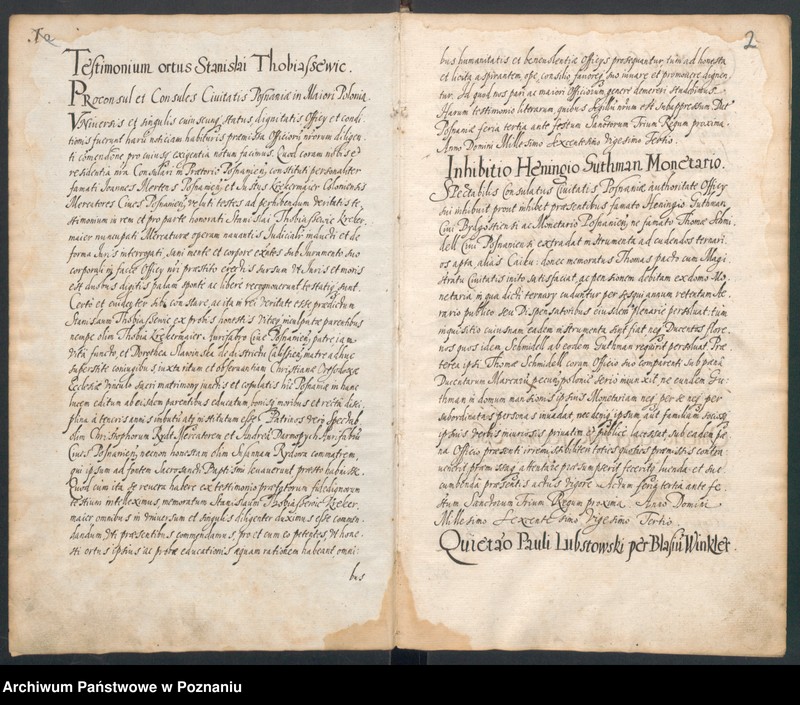 1a
Testimonium ortus Stanislai Thobiassewic.
Proconsul et Consules Ciuitatis Posnaniæ in Maiori Polonia
Vniuersis et singulis cuiuscunq; status, dignitatis Officij et condi
tionis fuerint harū noticiam habituris præmissa Officiorū nrorum diligen
ti comendōne pro cuiusq; exigentia notum facimus. Quod coram nobis et
residentia nra Consulari in Prætorio Posnanien, constituti personaliter
famati Ioannes Mertens Posnanien, et Iustus Krekermaier Coloniensis
Mercatores Ciues Posnanien, velut testes ad perhibendum veritatis te,
stimonium in rem et pro parte honorati Stanislai Thobiassewic Kreker,
maier nuncupati Mercaturæ operam nauantis Iudicialr inducti et de
forma Iuris interrogati, sani mente et corpore existēs sub Iuramento suo
corporali in facie Officij nri præstito erectis sursum vt Iuris et moris
est duobus digitis palam sponte ac libere recognouerunt testatiq; sunt.
Certo et euidenter sibi constare, ac ita in rei veritate esse prædictum
Stanislaum Thobiassewic ex probis honestis vitæq; inculpatæ parentibus
nempe olim Thobia Krekermaier Aurifabro ciue Posnanien, patre iam
vita functo et Dorothea Slawinska de districtu Calissien, matre adhuc
superstite coniugibus iuxta ritum et obseruantiam Christianæ Orthodoxæ
Ecclesiæ vinculo sacri matrimonij iunctis et copulatis hic Posnaniæ in hanc
lucem editum ab eisdem parentibus educatum, bonisq; moribus et recta disci,
plina à teneris annis imbutū atq; institutum esse. Patrinos vero Spectab
olim Christophorum Ryd Mercatorem et Andreā Darnspych Aurifabrū
Ciues Posnanien, necnon honestam olim Susannam Rydowa commatrem,
qui ipsum ad fontem Sacrosancti Baptismi leuauerunt præsto habuisse.
Quod cum ita se reuera habere ex testimonio præfatorum fidedignorum
testium intellexímus, memoratum Stanislaum Thobiassewic Kreker,
maier omnibus in vniuersum et singulis diligenter duximus esse commen,
dandum, vti præsentibus commendamus, pro et cum eo petentes, vt hone,
sti ortus ipsius ac probæ educationis æquam rationem habeant omni,
bus
2
bus humanitatis et beneuolentiæ Officijs prosequantur, tum ad honesta
et licita aspirantem, ope, consilio, fauoreq; suo iuuare et promouere dignen,
tur. Id quod nos pari ac maiori Officiorum genere demereri studebimus.
Harum testimonio literarum, quibus Sigillū nrum est subappressum. Dat
Posnaniæ feria tertia ante festum Sanctorum Trium Regum proxima.
Anno Domini Millesimo sexcentesimo vigesimo Tertio.
Inhibitio Heningio Guthman Monetario.
Spectabilis Consulatus Ciuitatis Posnaniæ authoritate Officij
sui inhibuit prout inhibet præsentibus famato Heningio Guthman
Ciui Bydgostiensi ac Monetario Posnanien, ne famato Thomæ Schmi,
dell Ciui Posnaniensi extradat instrumenta ad cudendos ternari,
os apta, alias Caiki: donec memoratus Thomas pacto cum Magi,
stratu Ciuitatis inito satisfaciat, ac pensionem debitam ex domo Mo,
netaria in qua dicti ternarij cuduntur per sesqui annum retentam Æ,
rario publico seu Dispensatoribus eiusdem plenarie persoluat: tum
inquisitio cuiusnam eadem instrumenta sint fiat neq; Ducentos flore,
nos quos idem Schmidell ab eodem Guthman requirit persoluat. Præ,
terea ipsi Thomæ Schmidell coram Officio suo comparenti sub pœna
Ducentarum Marcarū pecuniæ polonic serio iniunxit, ne eundem Gu,
thman in domum mansionis ipsius Monetariam neq; per se neq; per
subordinatas personas inuadat, nec deniq; ipsum aut familiam seu
ipsius verbis iniuriosis priuatim et publice lacessat sub eadem pœ
na Officio præsenti irremissibiliter toties quoties præmissis contra,
uenerit præmissaq; attentare præsumpserit feceritq; luenda et suc,
cumbenda præsentis actus vigore. Actum feria tertia ante fe,
stum Sanctorum Trium Regum proxima. Anno Domini
Millesimo Sexcentesimo Vigesimo Tertio.
Quietaō Pauli Lubstowski per Blasiū Winkler.
Archiwum Państwowe w Poznaniu